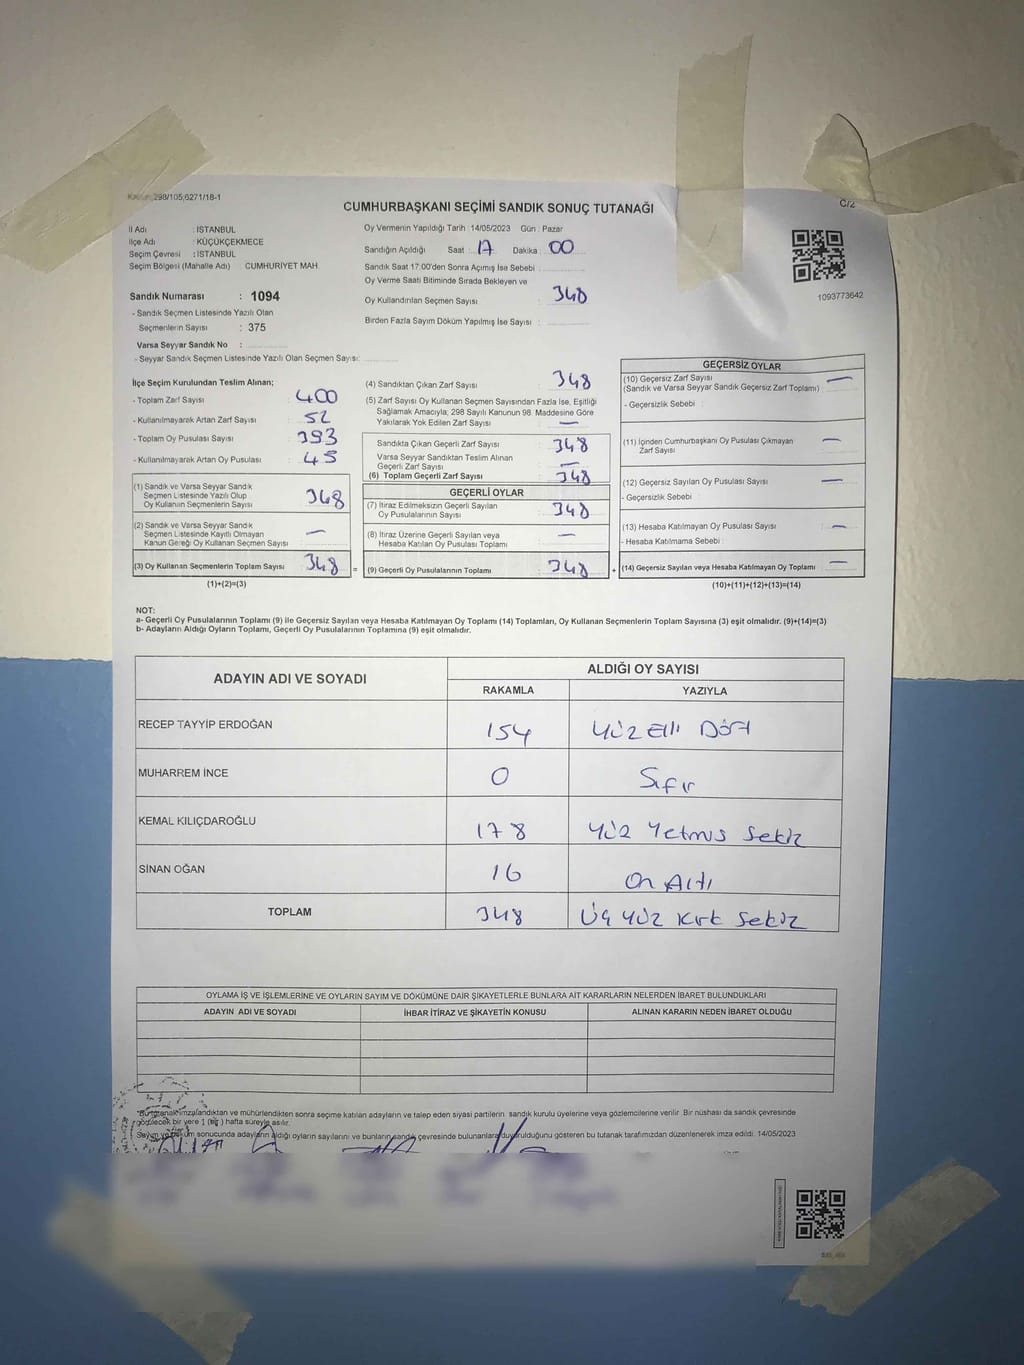 Kanun: 298/105;6271/18-1
C/2
CUMHURBAŞKANI SEÇİMİ SANDIK SONUÇ TUTANAĞI
İl Adı : İSTANBUL
İlçe Adı : KÜÇÜKÇEKMECE
Seçim Çevresi : İSTANBUL
Seçim Bölgesi (Mahalle Adı) : CUMHURİYET MAH
Sandık Numarası : 1094
- Sandık Seçmen Listesinde Yazılı Olan
Seçmenlerin Sayısı : 375
Varsa Seyyar Sandık No :
- Seyyar Sandık Seçmen Listesinde Yazılı Olan Seçmen Sayısı:
Oy Vermenin Yapıldığı Tarih 14/05/2023 Gün : Pazar
Sandığın Açıldığı Saat : 17 Dakika : 00
Sandık Saat 17:00'den Sonra Açımış İse Sebebi :
Oy Verme Saati Bitiminde Sırada Bekleyen ve
Oy Kullandırılan Seçmen Sayısı : 348
Birden Fazla Sayım Döküm Yapılmış İse Sayısı :
1093773642
İlçe Seçim Kurulundan Teslim Alınan;
- Toplam Zarf Sayısı : 400
- Kullanılmayarak Artan Zarf Sayısı : 52
- Toplam Oy Pusulası Sayısı : 393
- Kullanılmayarak Artan Oy Pusulası : 45
(1) Sandık ve Varsa Seyyar Sandık
Seçmen Listesinde Yazılı Olup
Oy Kullanan Seçmenlerin Sayısı : 348
(2) Sandık ve Varsa Seyyar Sandık
Seçmen Listesinde Kayıtlı Olmayan
Kanun Gereği Oy Kullanan Seçmen Sayısı : —
(3) Oy Kullanan Seçmenlerin Toplam Sayısı : 348
(1)+(2)=(3)
(4) Sandıktan Çıkan Zarf Sayısı : 348
(5) Zarf Sayısı Oy Kullanan Seçmen Sayısından Fazla İse, Eşitliği
Sağlamak Amacıyla; 298 Sayılı Kanunun 98. Maddesine Göre
Yakılarak Yok Edilen Zarf Sayısı : —
Sandıkta Çıkan Geçerli Zarf Sayısı : 348
Varsa Seyyar Sandıktan Teslim Alınan
Geçerli Zarf Sayısı : —
(6) Toplam Geçerli Zarf Sayısı : 348
GEÇERLİ OYLAR
(7) İtiraz Edilmeksizin Geçerli Sayılan
Oy Pusulalarının Sayısı : 348
(8) İtiraz Üzerine Geçerli Sayılan veya
Hesaba Katılan Oy Pusulası Toplamı : —
= (9) Geçerli Oy Pusulalarının Toplamı : 348 +
GEÇERSİZ OYLAR
(10) Geçersiz Zarf Sayısı : —
(Sandık ve Varsa Seyyar Sandık Geçersiz Zarf Toplamı)
- Geçersizlik Sebebi :
(11) İçinden Cumhurbaşkanı Oy Pusulası Çıkmayan
Zarf Sayısı : —
(12) Geçersiz Sayılan Oy Pusulası Sayısı : —
- Geçersizlik Sebebi :
(13) Hesaba Katılmayan Oy Pusulası Sayısı : —
- Hesaba Katılmama Sebebi :
(14) Geçersiz Sayılan veya Hesaba Katılmayan Oy Toplamı : —
(10)+(11)+(12)+(13)=(14)
NOT:
a- Geçerli Oy Pusulalarının Toplamı (9) ile Geçersiz Sayılan veya Hesaba Katılmayan Oy Toplamı (14) Toplamları, Oy Kullanan Seçmenlerin Toplam Sayısına (3) eşit olmalıdır. (9)+(14)=(3)
b- Adayların Aldığı Oyların Toplamı, Geçerli Oy Pusulalarının Toplamına (9) eşit olmalıdır.
ADAYIN ADI VE SOYADI
ALDIĞI OY SAYISI
RAKAMLA YAZIYLA
RECEP TAYYİP ERDOĞAN 154 Yüz Elli Dört
MUHARREM İNCE 0 Sıfır
KEMAL KILIÇDAROĞLU 178 Yüz Yetmiş Sekiz
SİNAN OĞAN 16 On Altı
TOPLAM 348 Üç Yüz Kırk Sekiz
OYLAMA İŞ VE İŞLEMLERİNE VE OYLARIN SAYIM VE DÖKÜMÜNE DAİR ŞİKAYETLERLE BUNLARA AİT KARARLARIN NELERDEN İBARET BULUNDUKLARI
ADAYIN ADI VE SOYADI İHBAR İTİRAZ VE ŞİKAYETİN KONUSU ALINAN KARARIN NEDEN İBARET OLDUĞU
*Bu tutanak imzalandıktan ve mühürlendikten sonra seçime katılan adayların ve talep eden siyasi partilerin, sandık kurulu üyelerine veya gözlemcilerine verilir. Bir nüshası da sandık çevresinde
görülecek bir yere 1 (bir) hafta süreyle asılır.
Sayım ve döküm sonucunda adayların aldığı oyların sayılarını ve bunların sandık çevresinde bulunanlara duyurulduğunu gösteren bu tutanak tarafımızdan düzenlenerek imza edildi. 14/05/2023